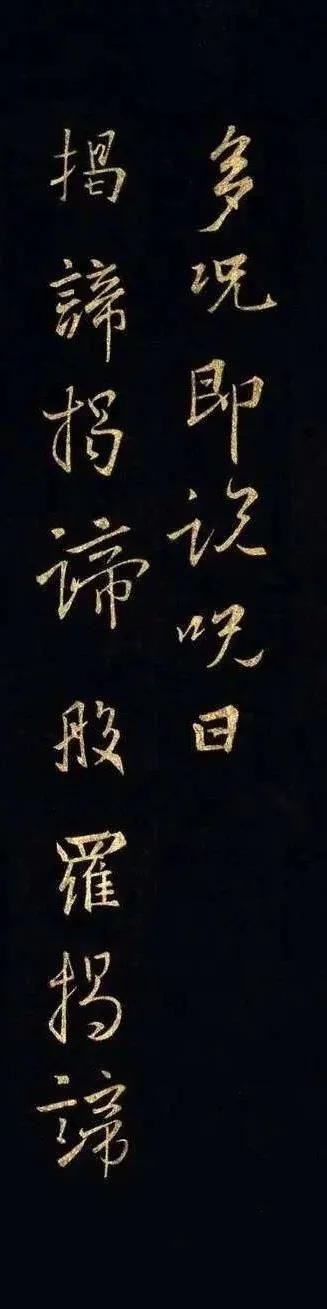 多咒即说咒曰
揭諦揭谛般羅揭諦